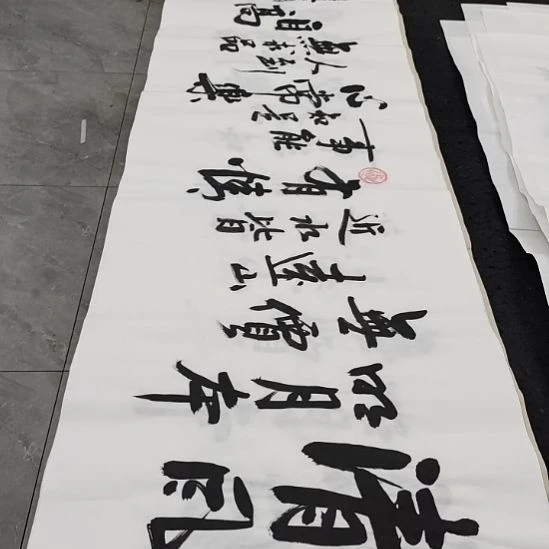 清风
明月本
無價
近水
遠山皆
有情
事能
知足
心常樂
人到
無求品
自高